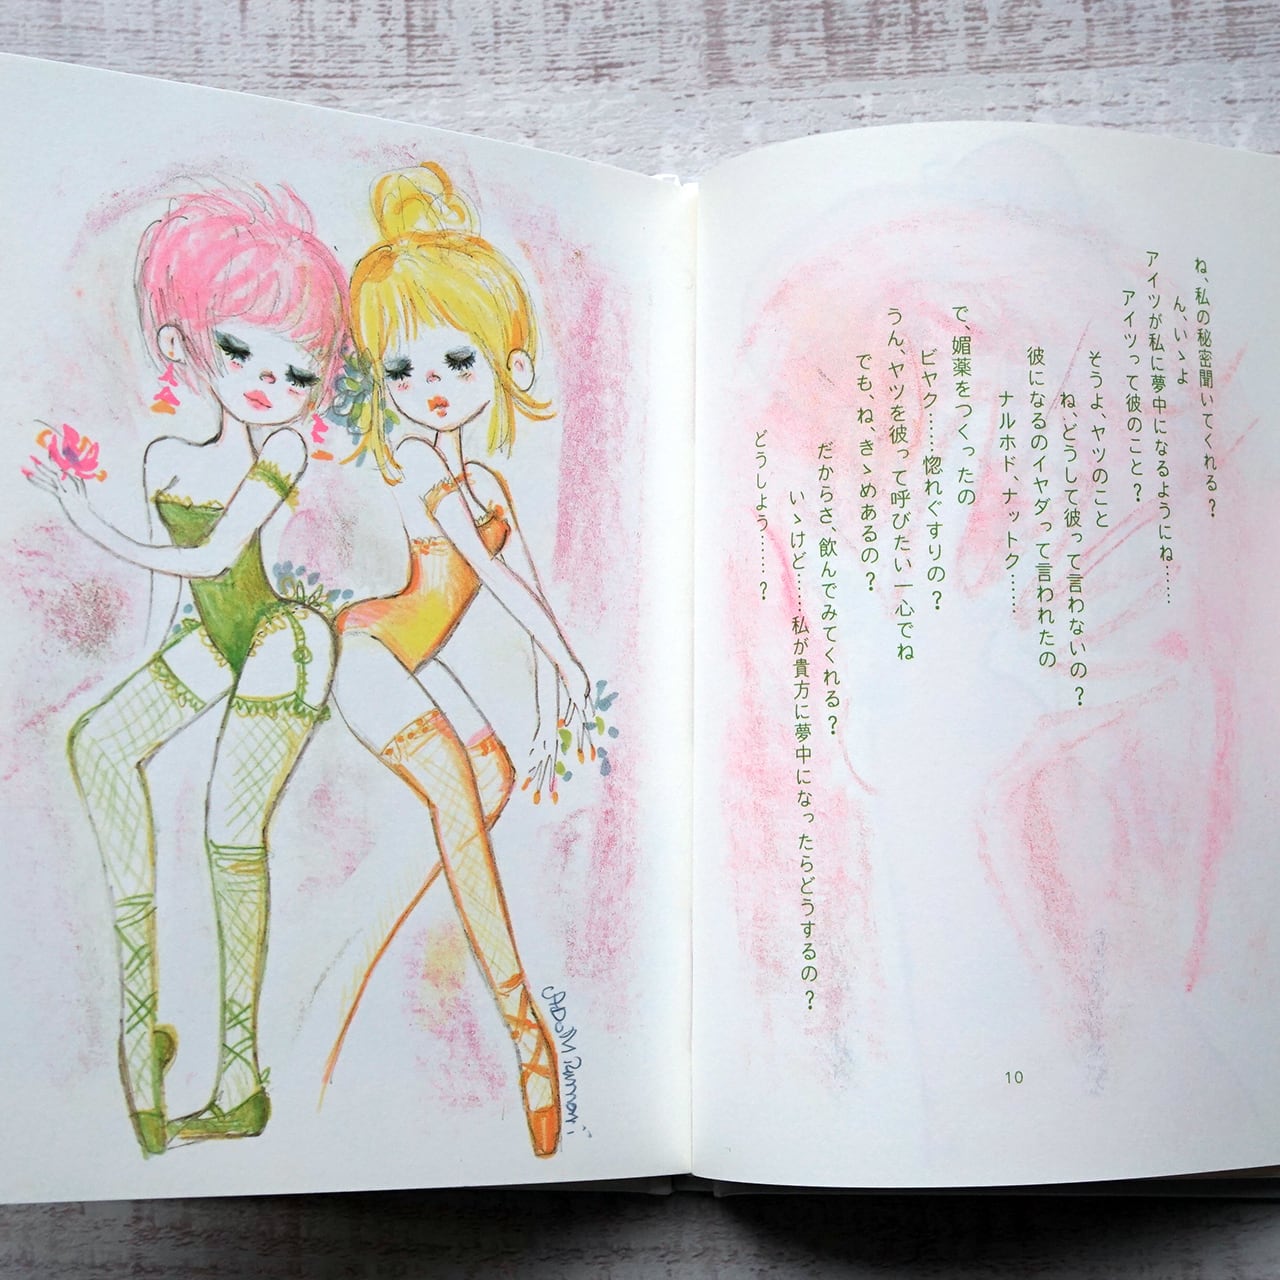 ね、私の秘密聞いてくれる？
ん、いゝよ
アイツが私に夢中になるようにね……
アイツって彼のこと？
そうよ、ヤツのこと
ね、どうして彼って言わないの？
彼になるのイヤダって言われたの
ナルホド、ナットク……
で、媚薬をつくったの
ビヤク……惚れぐすりの？
うん、ヤツを彼って呼びたい一心でね
でも、ね、きゝめあるの？
だからさ、飲んでみてくれる？
いゝけど……私が貴方に夢中になったらどうするの？
どうしよう……？
10